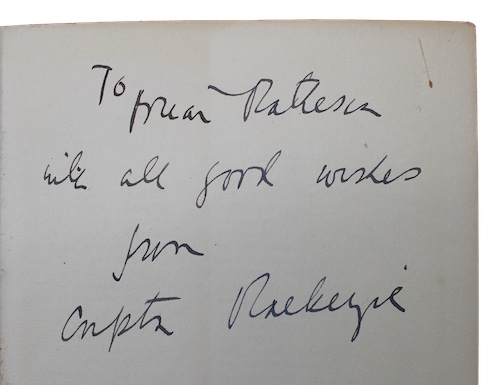 To Brian Matheson
with all good wishes
from
Compton Mackenzie